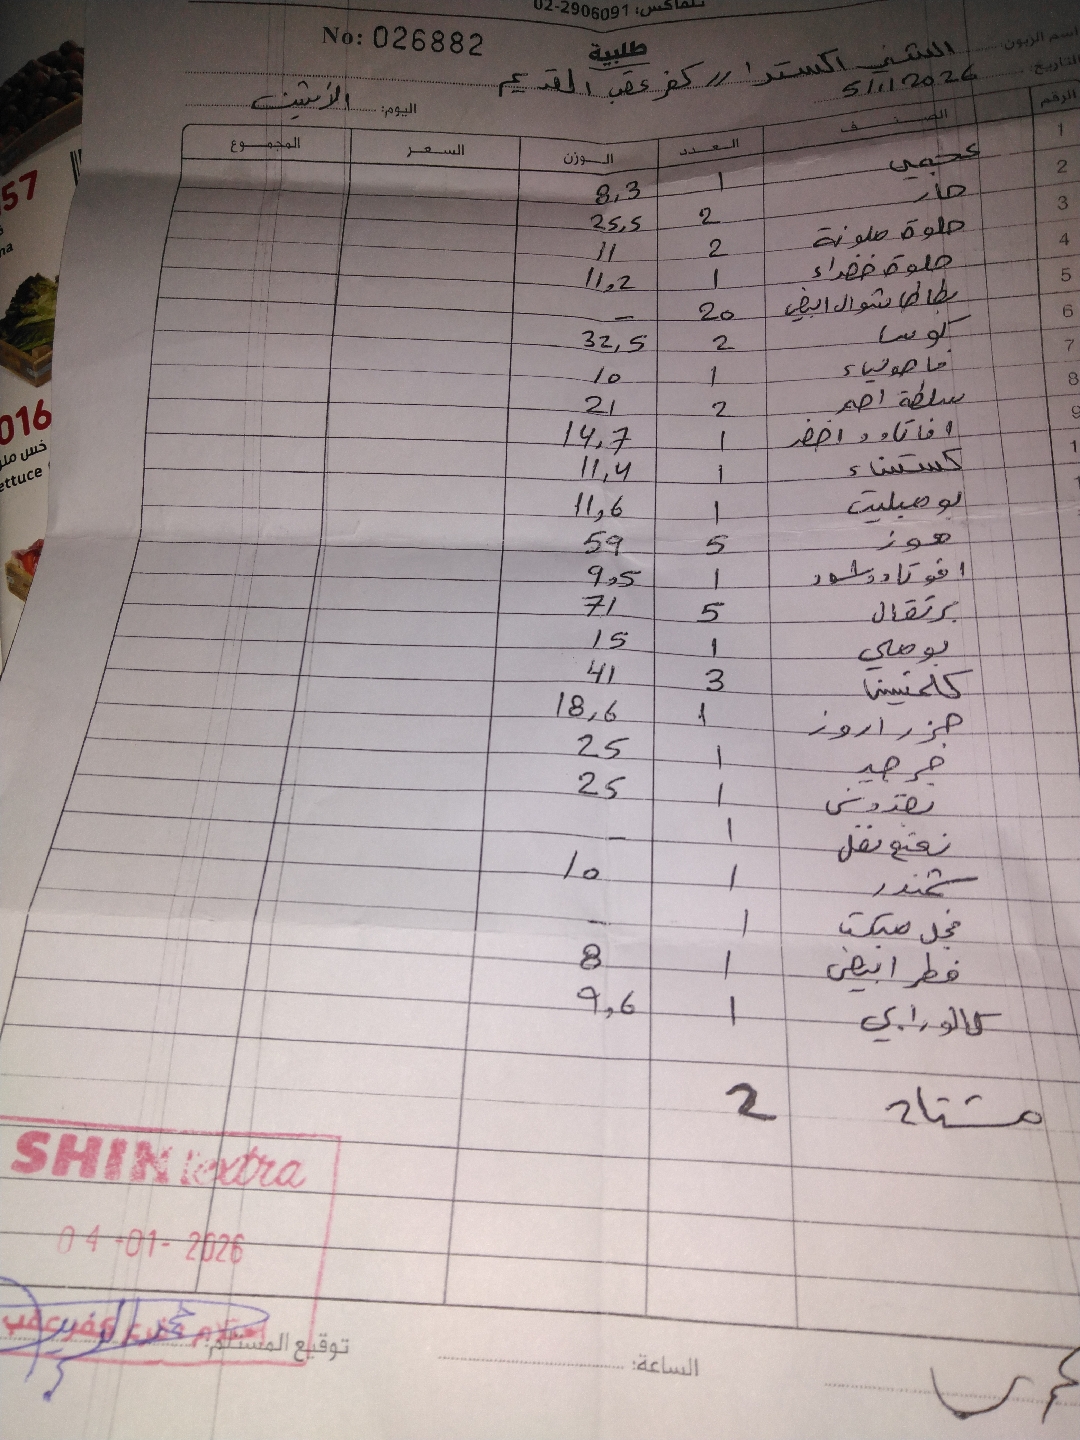 تلفاكس: 02-2906091
No: 026882
طلبية
اسم الزبون الشني اكسترا كفر عقب القديم
التاريخ: 5/1/2026
اليوم: الأثنين
الرقم الصنف العدد الوزن السعر المجموع
1 عجمي 1 8,3
2 حار 2 25,5
3 حلوة ملونة 2 11
4 حلوة خضراء 1 11,2
5 بطاطا شوال ابيض 20 -
6 كوسا 2 32,5
7 فاصولياء 1 10
8 سلطة احمر 2 21
9 افاتادو اخضر 1 14,7
كستناء 1 11,4
بوميليت 1 11,6
موز 5 59
افوتادو اسود 1 9,5
برتقال 5 71
بوملي 1 15
كلمنتينا 3 41
جزر اروز 1 18,6
جرجير 1 25
بقدونس 1 25
نعنع نفل 1 -
شمندر 1 10
فجل مبكت 1 -
فطر ابيض 1 8
كالورابي 1 9,6
مشتاح 2
SHINI extra
04-01-2026
توقيع المستلم:
الساعة:
57
na
016
خس
ettuce